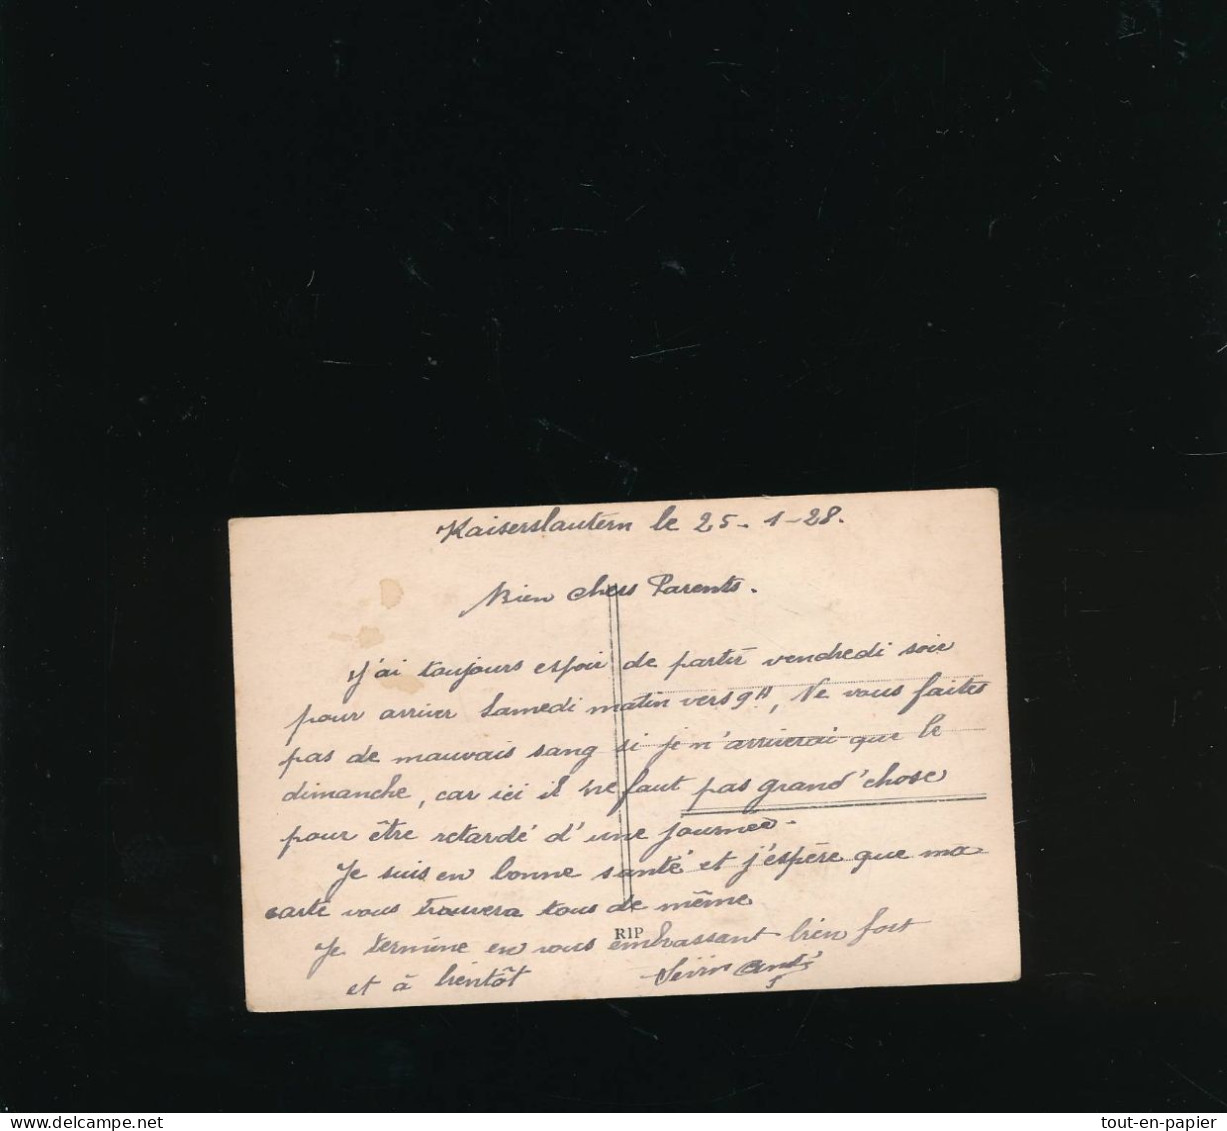 Kaiserslautern le 25-1-28.
Bien chers Parents.
J'ai toujours espoir de partir vendredi soir
pour arriver Samedi matin vers 9H, Ne vous faites
pas de mauvais sang si je n'arriverai que le
dimanche, car ici il ne faut pas grand'chose
pour être retardé d'une journée.
Je suis en bonne santé et j'espère que ma
carte vous trouvera tous de même
Je termine en vous embrassant bien fort
et à bientôt
RIP
tout-en-papier